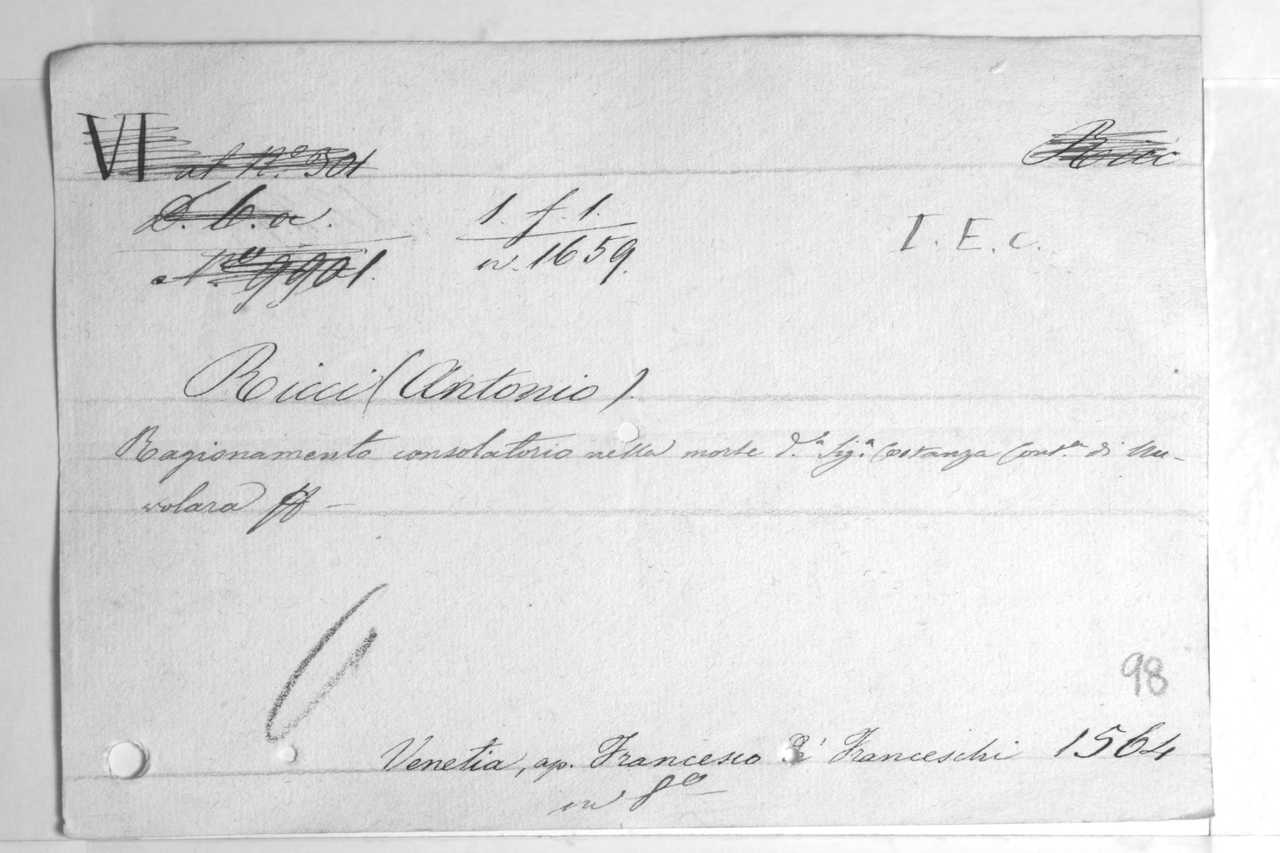 VI al N.º 501
Ricci
D. b. a.
1. f. 1.
I. E. c.
Nº 9901.
n. 1659.
Ricci (Antonio).
Ragionamento consolatorio nella morte d.ª Sig.ª Costanza Cont.ª di Nu-
volara
98
Venetia, ap. Francesco d' Franceschi 1564
in 8º